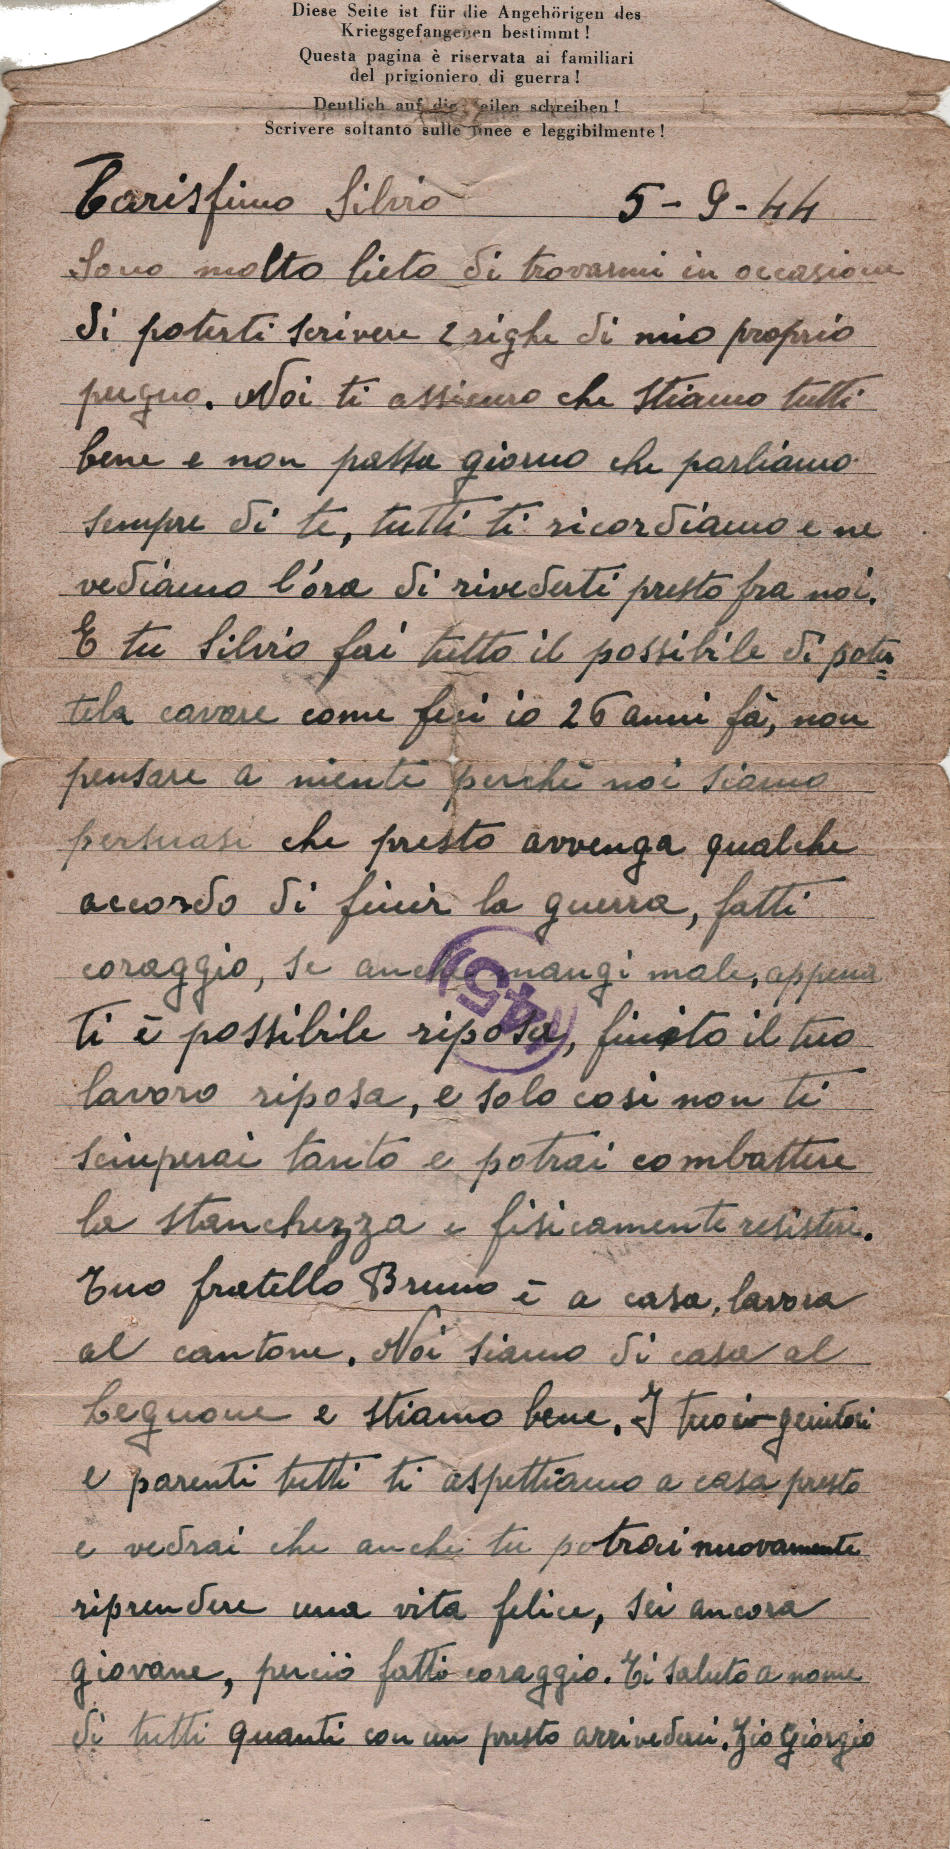 Diese Seite ist für die Angehörigen des
Kriegsgefangenen bestimmt!
Questa pagina è riservata ai familiari
del prigioniero di guerra!
Deutlich auf die Zeilen schreiben!
Scrivere soltanto sulle linee e leggibilmente!
Carissimo Silvio 5-9-44
Sono molto lieto di trovarmi in occasione
di poterti scrivere 2 righe di mio proprio
pugno. Noi ti assicuro che stiamo tutti
bene e non passa giorno che parliamo
sempre di te, tutti ti ricordiamo e ne
vediamo l'ora di rivederti presto fra noi.
E tu Silvio fai tutto il possibile di poter=
tela cavare come feci io 26 anni fà, non
pensare a niente perchè noi siamo
persuasi che presto avvenga qualche
accordo di finir la guerra, fatti
coraggio, se anche mangi male, appena
ti è possibile riposa, finito il tuo
lavoro riposa, e solo cosi non ti
sciuperai tanto e potrai combattere
la stanchezza e fisicamente resistere.
Tuo fratello Bruno è a casa, lavora
al cantone. Noi siamo di casa al
Cegnone e stiamo bene. I tuoi genitori
e parenti tutti ti aspettiamo a casa presto
e vedrai che anche tu potrai nuovamente
riprendere una vita felice, sei ancora
giovane, perciò fatti coraggio. Ti saluto a nome
di tutti quanti con un presto arrivederci. Zio Giorgio
45